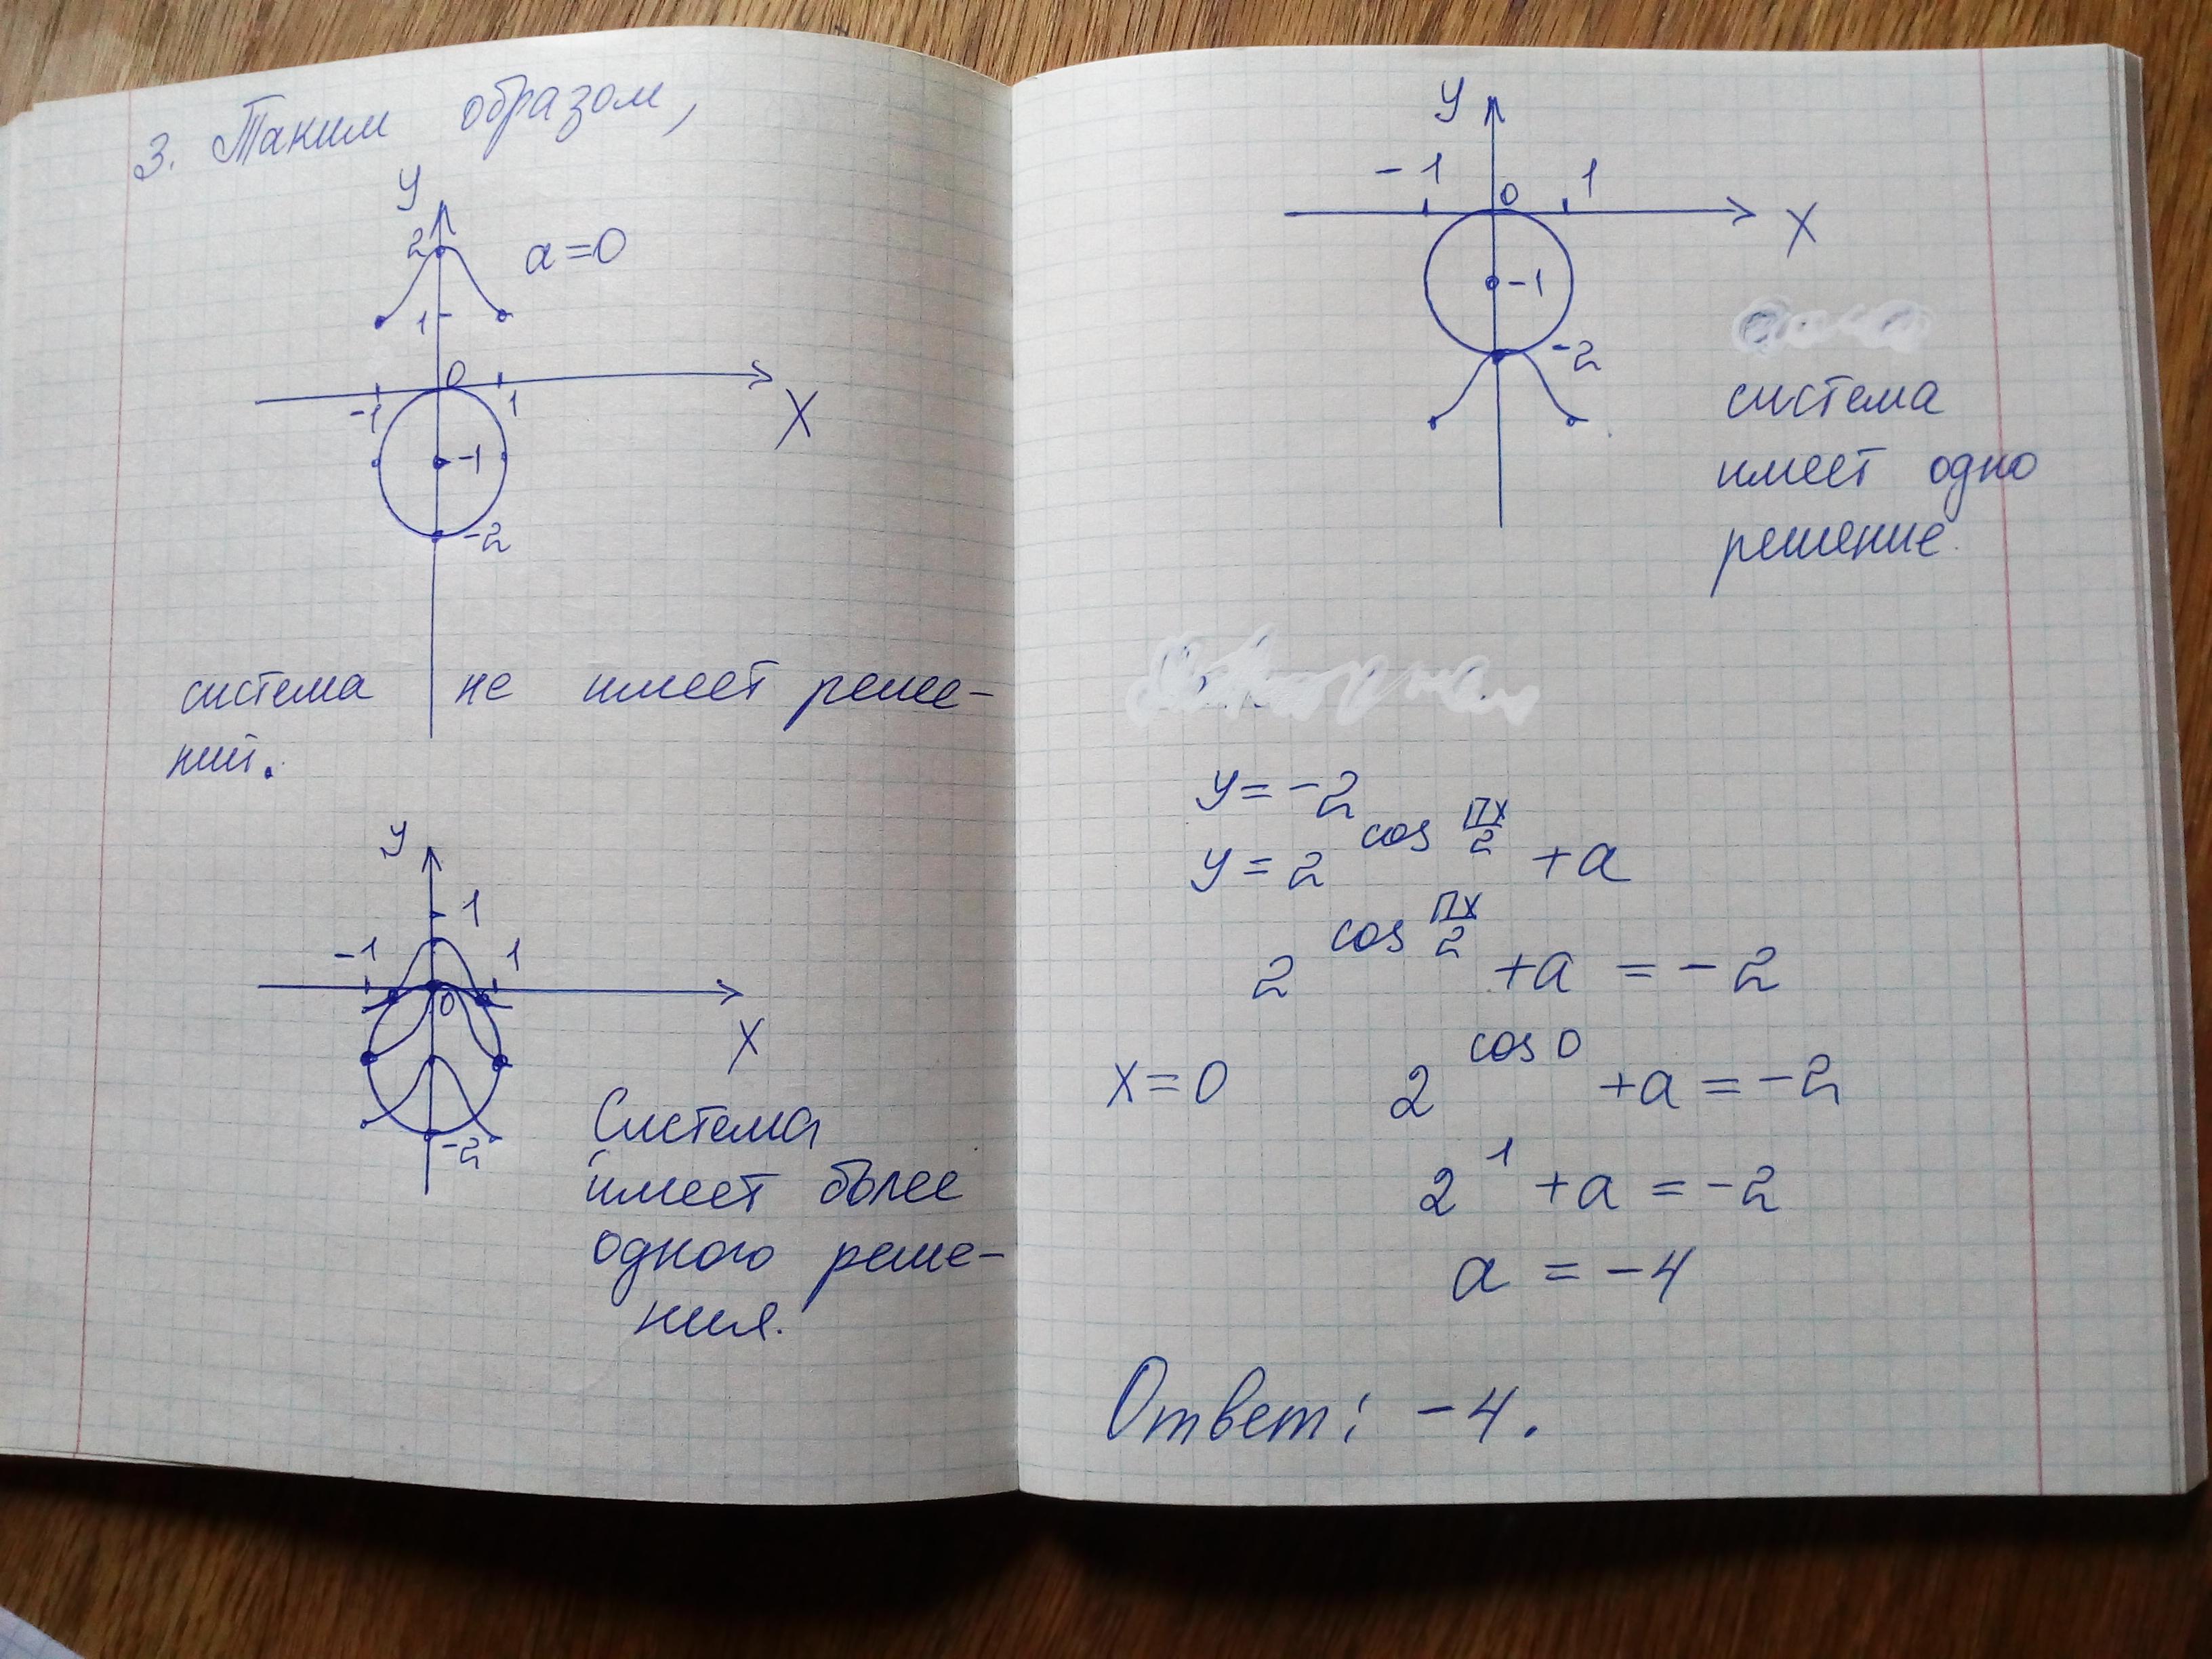 3. Таким образом,
y
2
a=0
1
0
-1
1
X
-1
-2
система не имеет реше-
ний.
y
1
-1
1
0
X
-2
Система
имеет более
одного реше-
ния.
y
-1
0
1
X
-1
-2
система
имеет одно
решение.
y = -2
y = 2^{cos \frac{ПX}{2}} + a
2^{cos \frac{ПX}{2}} + a = -2
x = 0 2^{cos 0} + a = -2
2^{1} + a = -2
a = -4
Ответ: -4.